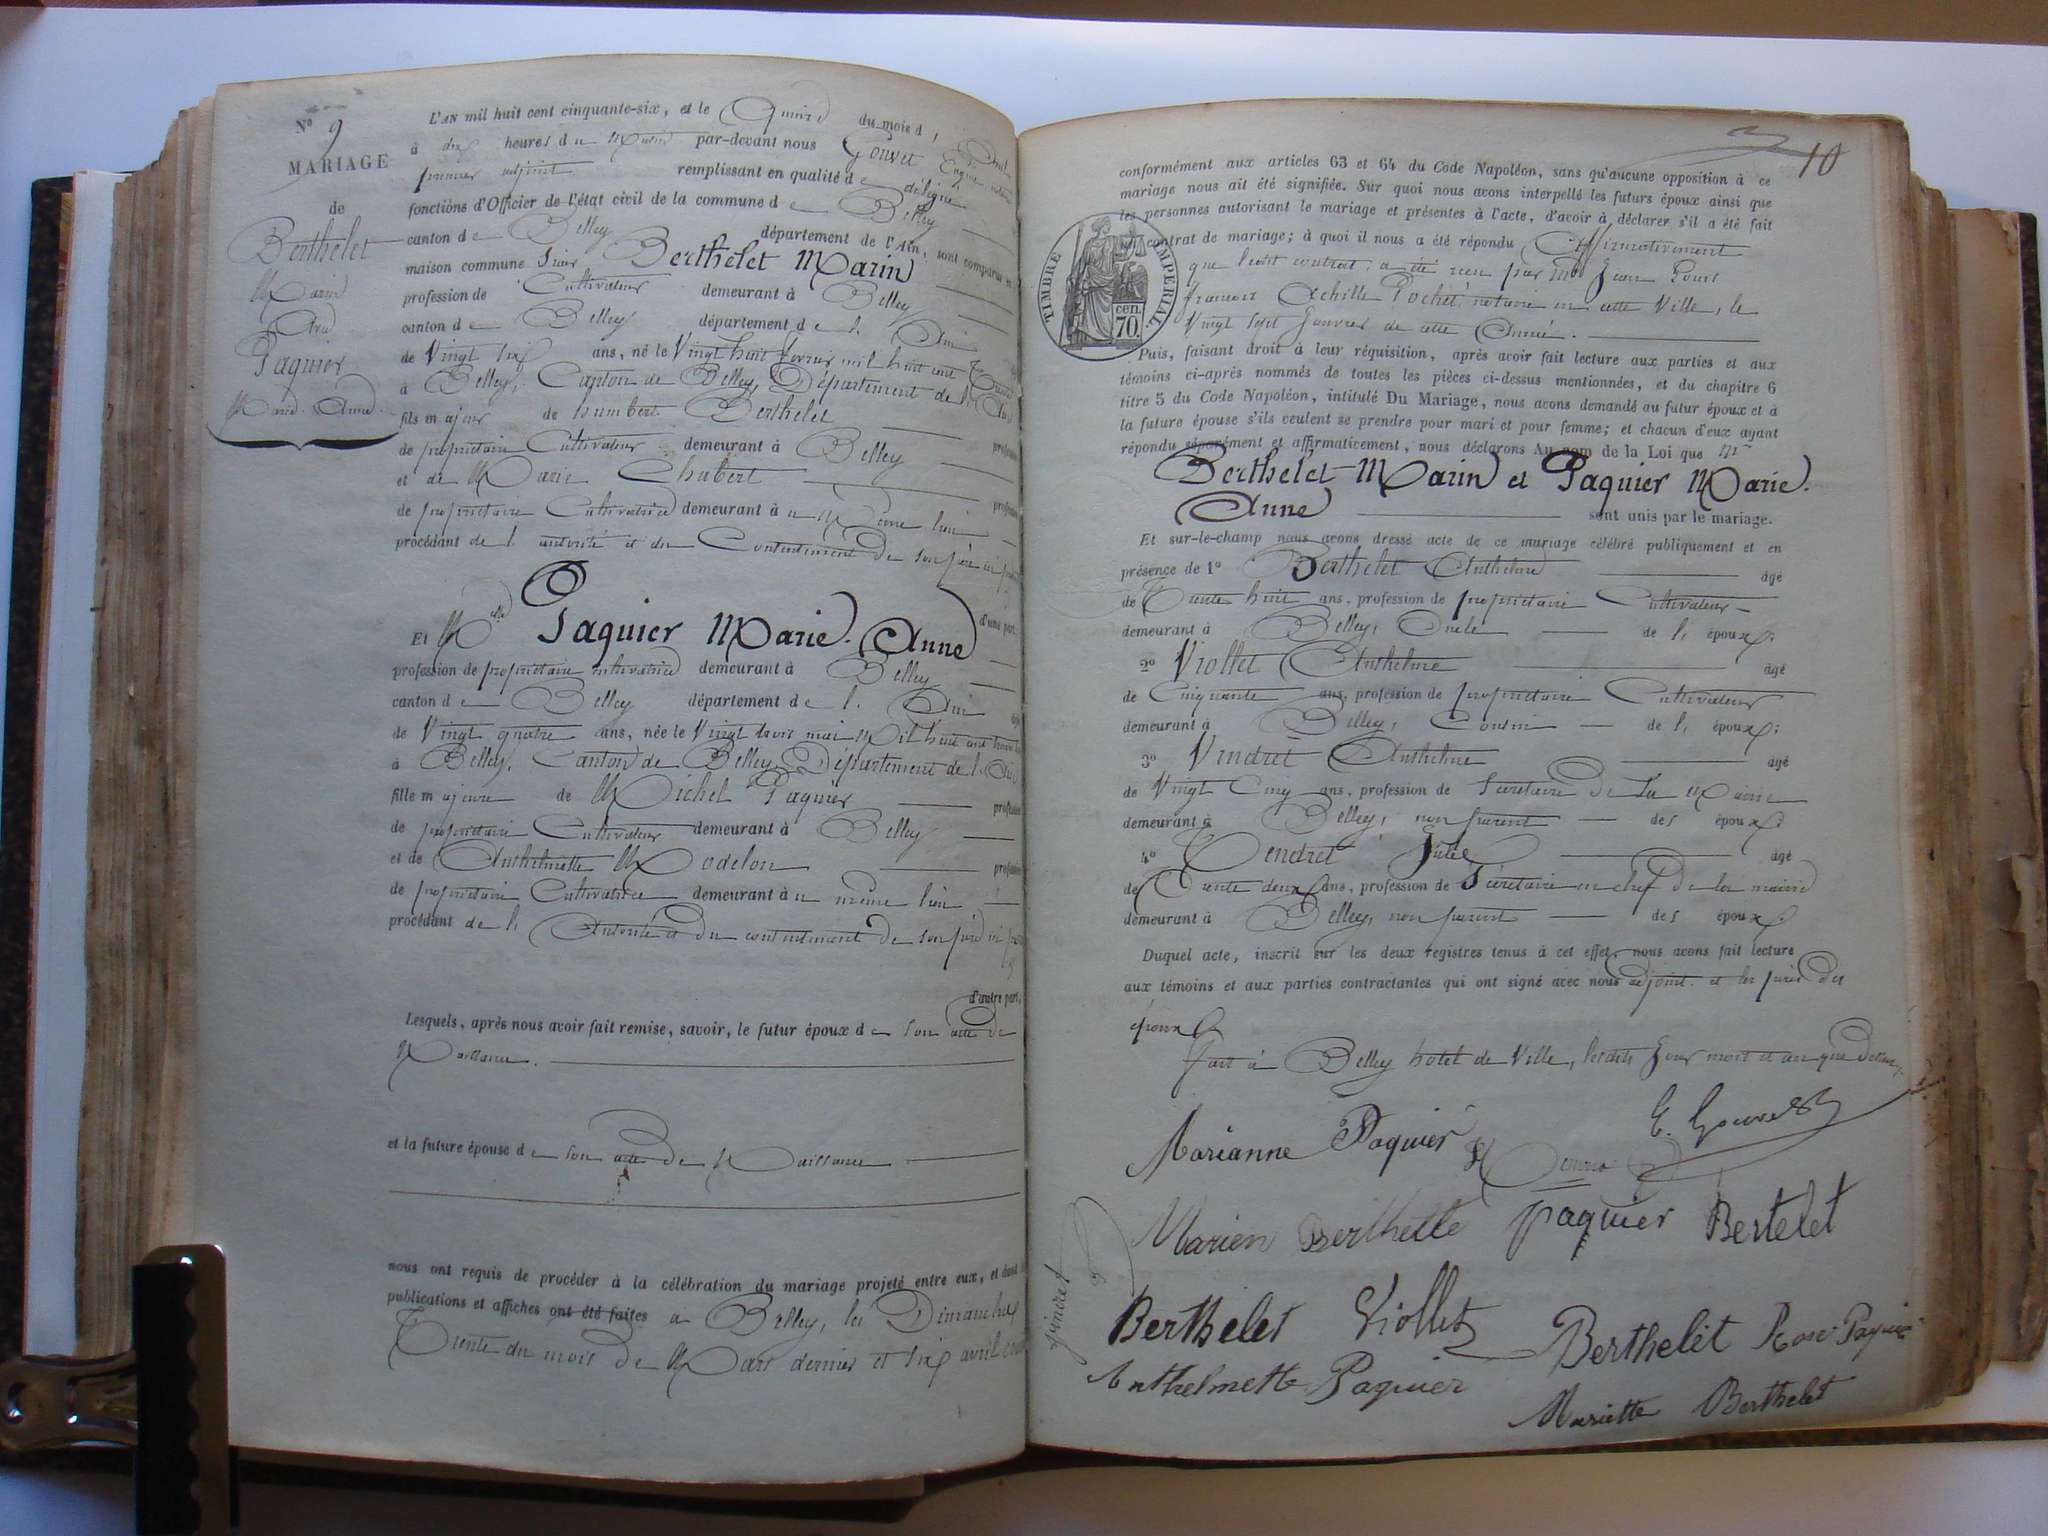 N° 9
MARIAGE
de
Berthelet
Marin
Paquier
Marie. Anne.
L'AN mil huit cent cinquante-six, et le Quinze du mois d'
à dix heures du Matin par-devant nous Gouvet
premier adjoint remplissant en qualité de délégué
fonctions d'Officier de l'état civil de la commune de Belley
canton de Belley département de l'Ain, sont comparus en
maison commune Sieur Berthelet Marin
profession de Cultivateur demeurant à Belley
canton de Belley département de l' Ain
de Vingt six ans, né le Vingt huit fevrier mil huit cent
à Belley, Canton de Belley, Département de l'Ain
fils majeur de humbert Berthelet
de propriétaire Cultivateur demeurant à Belley
et de Marie Chabert
de propriétaire Cultivatrice demeurant à u Même lieu
procédant de l' autorité et du Consentement de son père ici
d'une part.
Et Melle Paquier Marie. Anne
profession de propriétaire cultivatrice demeurant à Belley
canton de Belley département de l' Ain
de Vingt quatre ans, née le Vingt trois mai Mil huit cent
à Belley, Canton de Belley, Département de l'Ain
fille majeure de Michel Paquier
de propriétaire Cultivateur demeurant à Belley
et de Anthelmette Modelon
de propriétaire Cultivatrice demeurant à u même lieu
procédant de l' Autorité et du consentement de son père ici
d'autre part,
Lesquels, après nous avoir fait remise, savoir, le futur époux de son acte de
Naissance.
et la future épouse de son acte de Naissance
nous ont requis de procéder à la célébration du mariage projeté entre eux, et dont
publications et affiches ont été faites à Belley, les Dimanches
Trente du mois de Mars dernier et six avril
10
conformément aux articles 63 et 64 du Code Napoléon, sans qu'aucune opposition à ce
mariage nous ait été signifiée. Sur quoi nous avons interpellé les futurs époux ainsi que
les personnes autorisant le mariage et présentes à l'acte, d'avoir à déclarer s'il a été fait
un contrat de mariage; à quoi il nous a été répondu Affirmativement
TIMBRE IMPÉRIAL.
cen.
70.
que ledit contrat, a été reçu par Me Jean Louis
françois Achille Pochet, notaire en cette Ville, le
Vingt sept Janvier de cette Année.
Puis, faisant droit à leur réquisition, après avoir fait lecture aux parties et aux
témoins ci-après nommés de toutes les pièces ci-dessus mentionnées, et du chapitre 6
titre 5 du Code Napoléon, intitulé Du Mariage, nous avons demandé au futur époux et à
la future épouse s'ils veulent se prendre pour mari et pour femme; et chacun d'eux ayant
répondu séparément et affirmativement, nous déclarons Au nom de la Loi que
Berthelet Marin et Paquier Marie.
Anne sont unis par le mariage.
Et sur-le-champ nous avons dressé acte de ce mariage célébré publiquement et en
présence de 1° Berthelet Anthelme âgé
de Trente huit ans, profession de propriétaire Cultivateur
demeurant à Belley, Oncle de l' époux;
2° Viollet Anthelme âgé
de Cinquante ans, profession de propriétaire Cultivateur
demeurant à Belley, Cousin de l' époux;
3° Vindret Anthelme âgé
de Vingt Cinq ans, profession de Secretaire de La Mairie
demeurant à Belley, non parent des époux;
4° Tendret Jules âgé
de Trente deux ans, profession de Secretaire en chef de la mairie
demeurant à Belley, non parent des époux.
Duquel acte, inscrit sur les deux registres tenus à cet effet, nous avons fait lecture
aux témoins et aux parties contractantes qui ont signé avec nous adjoint et les pères des
époux
fait à Belley hotel de Ville, lesdits Jour mois et an que dessus
E. Gouvet
Marianne Paquier
Marien Berthelle paquier Bertelet
Vindret
Berthelet Viollet Berthelet Rose Paquier
Anthelmette Paquier
Mariette Berthelet